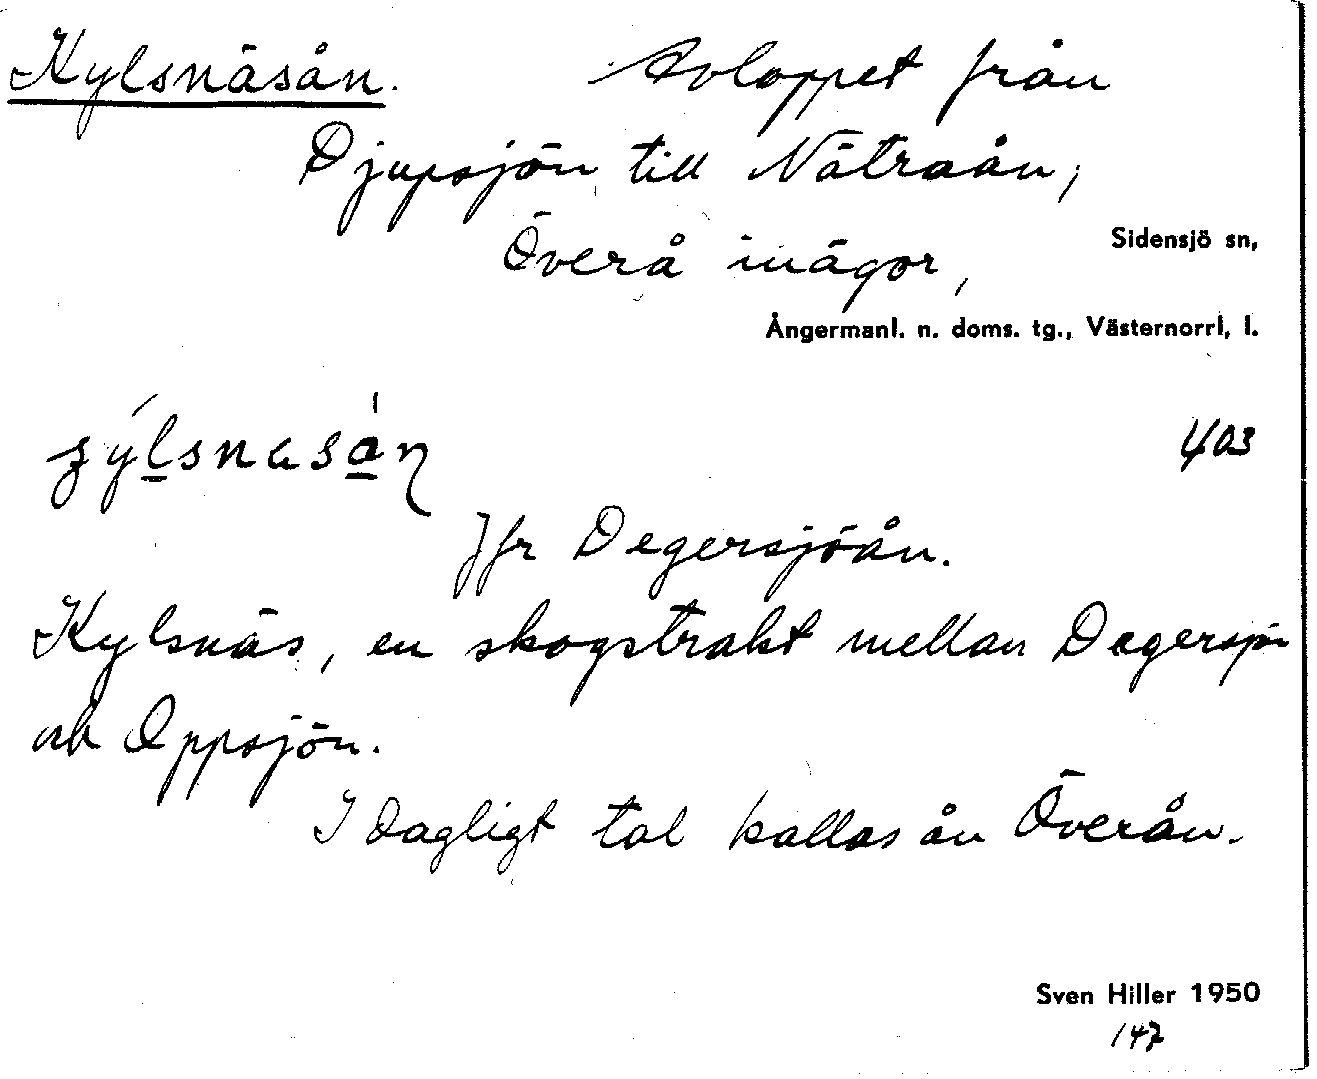 Kylsnäsån. Avloppet från
Djupsjön till Nätraån,
Överå inägor,
Sidensjö sn,
Ångermanl. n. doms. tg., Västernorrl, l.
403
Jfr Degersjöån.
Kylsnäs, en skogstrakt mellan Degersjön
och Oppsjön.
I dagligt tal kallas ån Överån.
Sven Hiller 1950
147